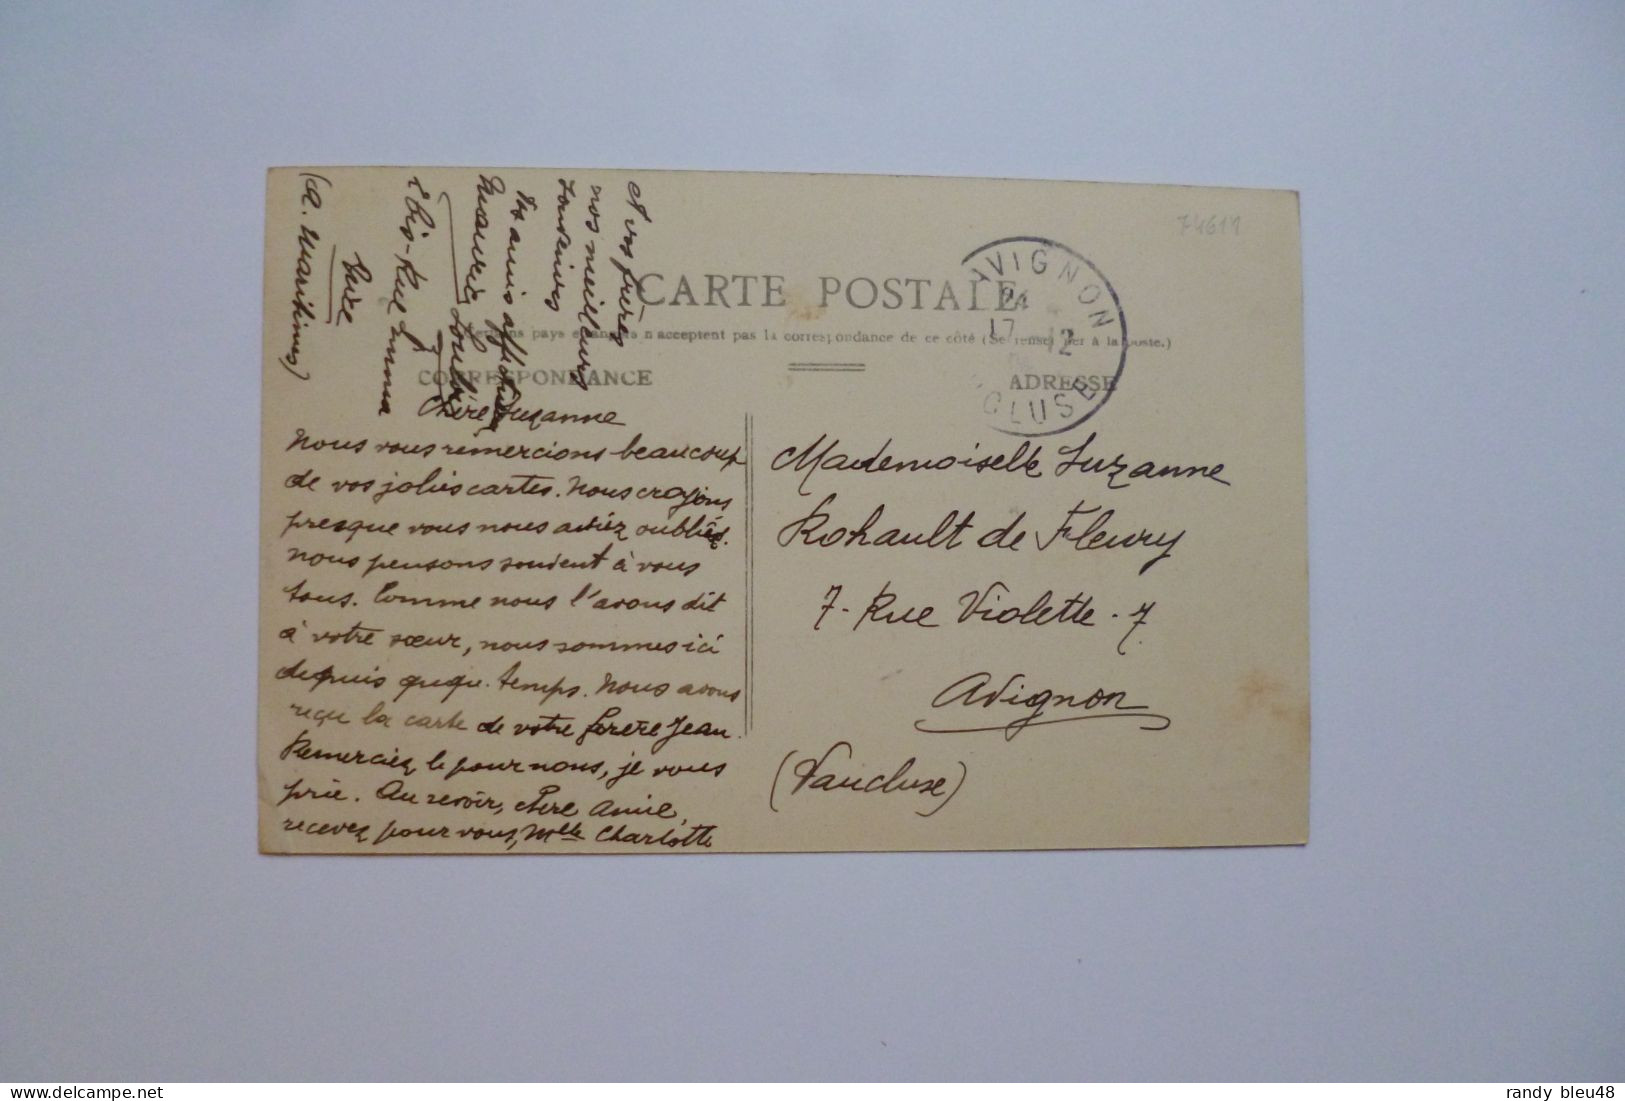 74611
CARTE POSTALE
Certains pays étrangers n'acceptent pas la correspondance de ce côté (Se renseigner à la poste.)
CORRESPONDANCE
ADRESSE
AVIGNON
24
17 12
CLUSE
Chère Suzanne
Nous vous remercions beaucoup
de vos jolies cartes. Nous croyions
presque vous nous aviez oubliés.
Nous pensons souvent à vous
tous. Comme nous l'avons dit
à votre sœur, nous sommes ici
depuis quequ. temps. Nous avons
reçu la carte de votre frère Jean.
Remerciez le pour nous, je vous
prie. Au revoir, chère Amie,
recevez pour vous, Mlle Charlotte
et vos frères
nos meilleurs
souvenirs
Vos amis
Maurice
bis - Rue Emma
Nice
(A. Maritimes)
Mademoiselle Suzanne
Rohault de Fleury
7 - Rue Violette - 7
Avignon
(Vaucluse)
delcampe.net
randy_bleu48